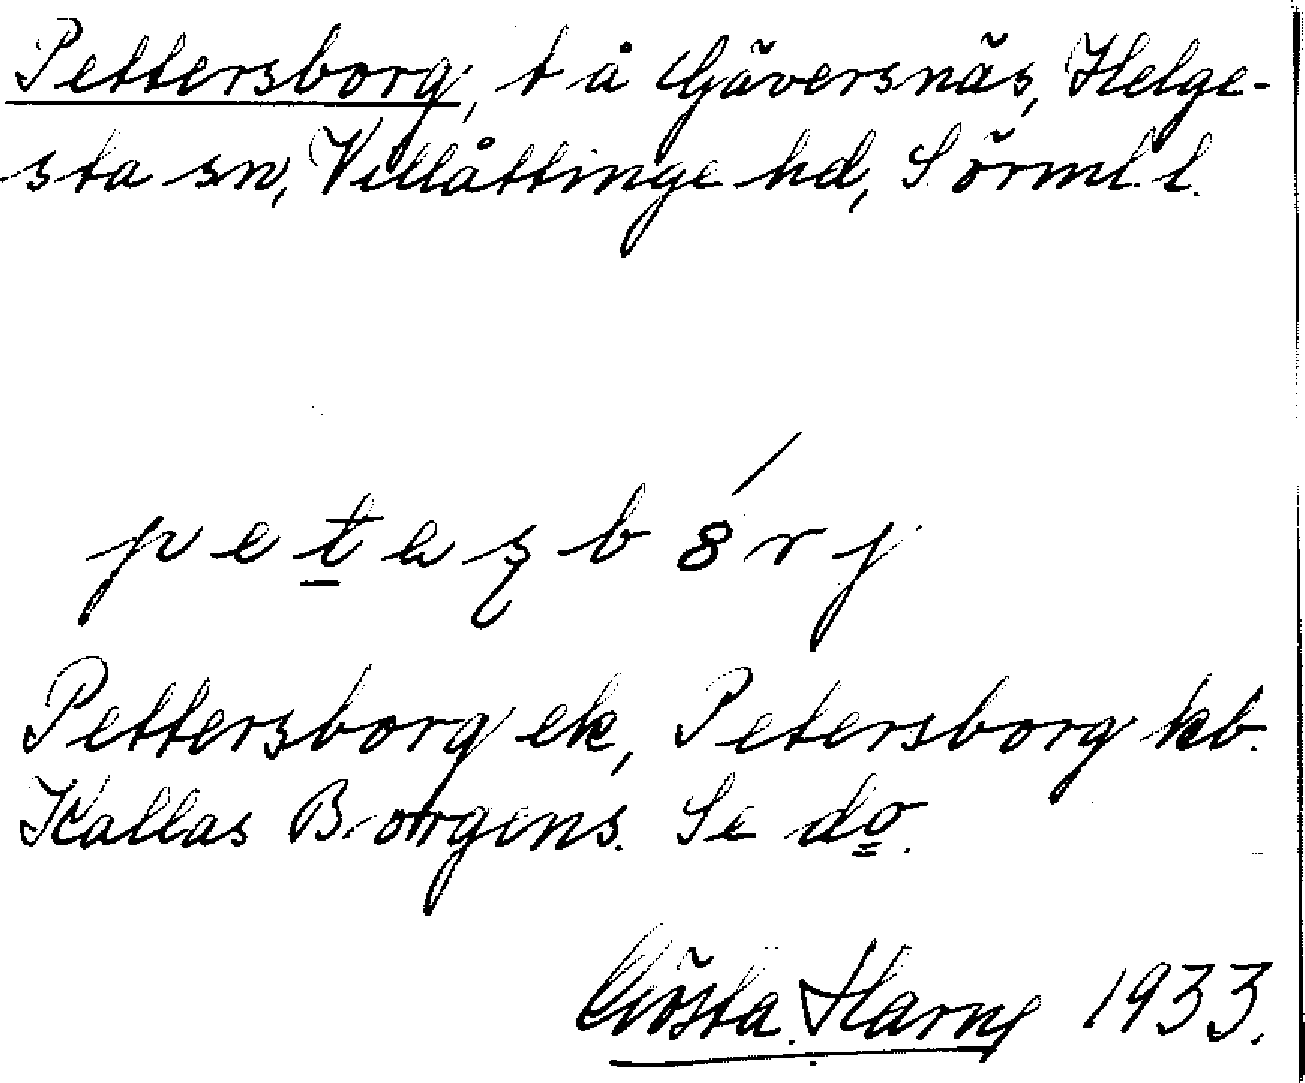 Pettersborg, t å Gäversnäs, Helge-
sta sn, Villåttinge hd, Sörml. l.
Pettersborg ek, Petersborg kb.
Kallas Borgens. Se do.
Gösta Harng 1933.